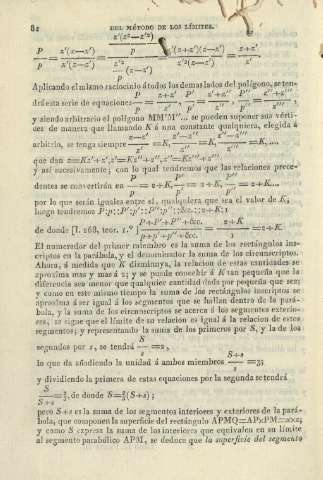 82 DEL MÉTODO DE LOS LÍMITES.
z'(z²—z'²)
P/p = x'(x—x')/p = p/(z'²/p (z—z')) = z'(z+z')(z—z')/z'²(z—z') = z+z'/z'
Aplicando el mismo raciocinio á todos los demas lados del polígono, se ten-
drá esta serie de equaciones P/p = z+z'/z', P'/p' = z'+z''/z'', P''/p'' = z''+z'''/z''',
y siendo arbitrario el polígono MM'M''... se pueden suponer sus vérti-
ces de manera que llamando K á una constante qualquiera, elegida á
arbitrio, se tenga siempre z—z'/z' = K, z'—z''/z'' = K, z''—z'''/z''' = K,....
que dan z=Kz'+z', z'=Kz''+z'', z''=Kz'''+z'''
y así sucesivamente; con lo qual tendremos que las relaciones prece-
dentes se convertirán en P/p = 2+K, P'/p' = 2+K, P''/p'' = 2+K...
por lo que serán iguales entre sí, qualquiera que sea el valor de K;
luego tendremos P:p::P':p'::P'':p''::&c.::2+K:1
de donde [I. 168, teor. 1.º] P+P'+P''+&c./p+p'+p''+&c. = 2+K/1 = 2+K.
El numerador del primer miembro es la suma de los rectángulos ins-
criptos en la parábola, y el denominador la suma de los circunscriptos.
Ahora, á medida que K disminuya, la relacion de estas cantidades se
aproxima mas y mas á 2; y se puede concebir á K tan pequeña que la
diferencia sea menor que qualquier cantidad dada por pequeña que sea;
y como en este mismo tiempo la suma de los rectángulos inscriptos se
aproxima á ser igual á los segmentos que se hallan dentro de la pará-
bola, y la suma de los circunscriptos se acerca á los segmentos exterio-
res, se sigue que el límite de su relacion es igual á la relacion de estos
segmentos; y representando la suma de los primeros por S, y la de los
segundos por s, se tendrá S/s = 2,
lo que da añadiendo la unidad á ambos miembros S+s/s = 3;
y dividiendo la primera de estas equaciones por la segunda se tendrá
S/S+s = 2/3, de donde S=2/3(S+s);
pero S+s es la suma de los segmentos interiores y exteriores de la pará-
bola, que componen la superficie del rectángulo APMQ=AP×PM=xz;
y como S expresa la suma de los interiores que equivalen en su límite
al segmento parabólico APM, se deduce que la superficie del segmento